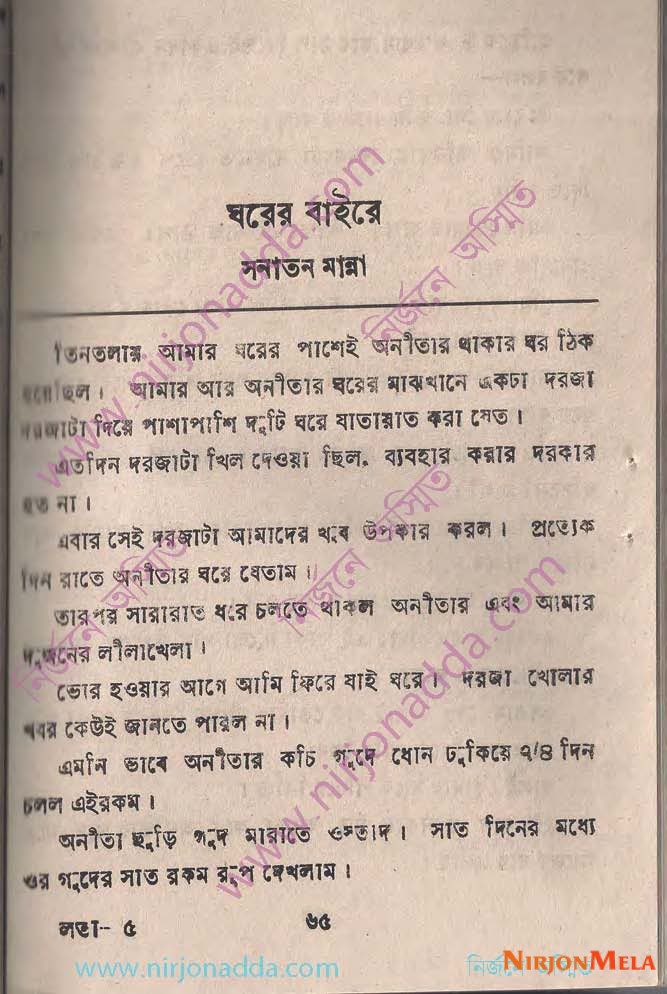 ঘরের বাইরে
সনাতন মান্না
তিনতলায় আমার ঘরের পাশেই অনীতার থাকার ঘর ঠিক
হয়েছিল। আমার আর অনীতার ঘরের মাঝখানে একটা দরজা
দরজাটা দিয়ে পাশাপাশি দুটি ঘরে যাতায়াত করা যেত।
এতদিন দরজাটা খিল দেওয়া ছিল, ব্যবহার করার দরকার
হত না।
এবার সেই দরজাটা আমাদের খুব উপকার করল। প্রত্যেক
দিন রাতে অনীতার ঘরে যেতাম।
তারপর সারারাত ধরে চলতে থাকল অনীতার এবং আমার
দুজনের লীলাখেলা।
ভোর হওয়ার আগে আমি ফিরে যাই ঘরে। দরজা খোলার
খবর কেউই জানতে পারল না।
এমনি ভাবে অনীতার কচি গুদে ধোন ঢুকিয়ে ৭/৪ দিন
চলল এইরকম।
অনীতা ছুড়ি গুদ মারাতে ওস্তাদ। সাত দিনের মধ্যে
ওর গুদের সাত রকম রূপ দেখলাম।
লতা- ৫ ৬৫
www.nirjonadda.com
নির্জনে অস্মিত
www.nirjonadda.com
নির্জনে অস্মিত
নির্জনে অস্মিত
www.nirjonadda.com
নির্জনে অস্মিত
NIRJONMELA